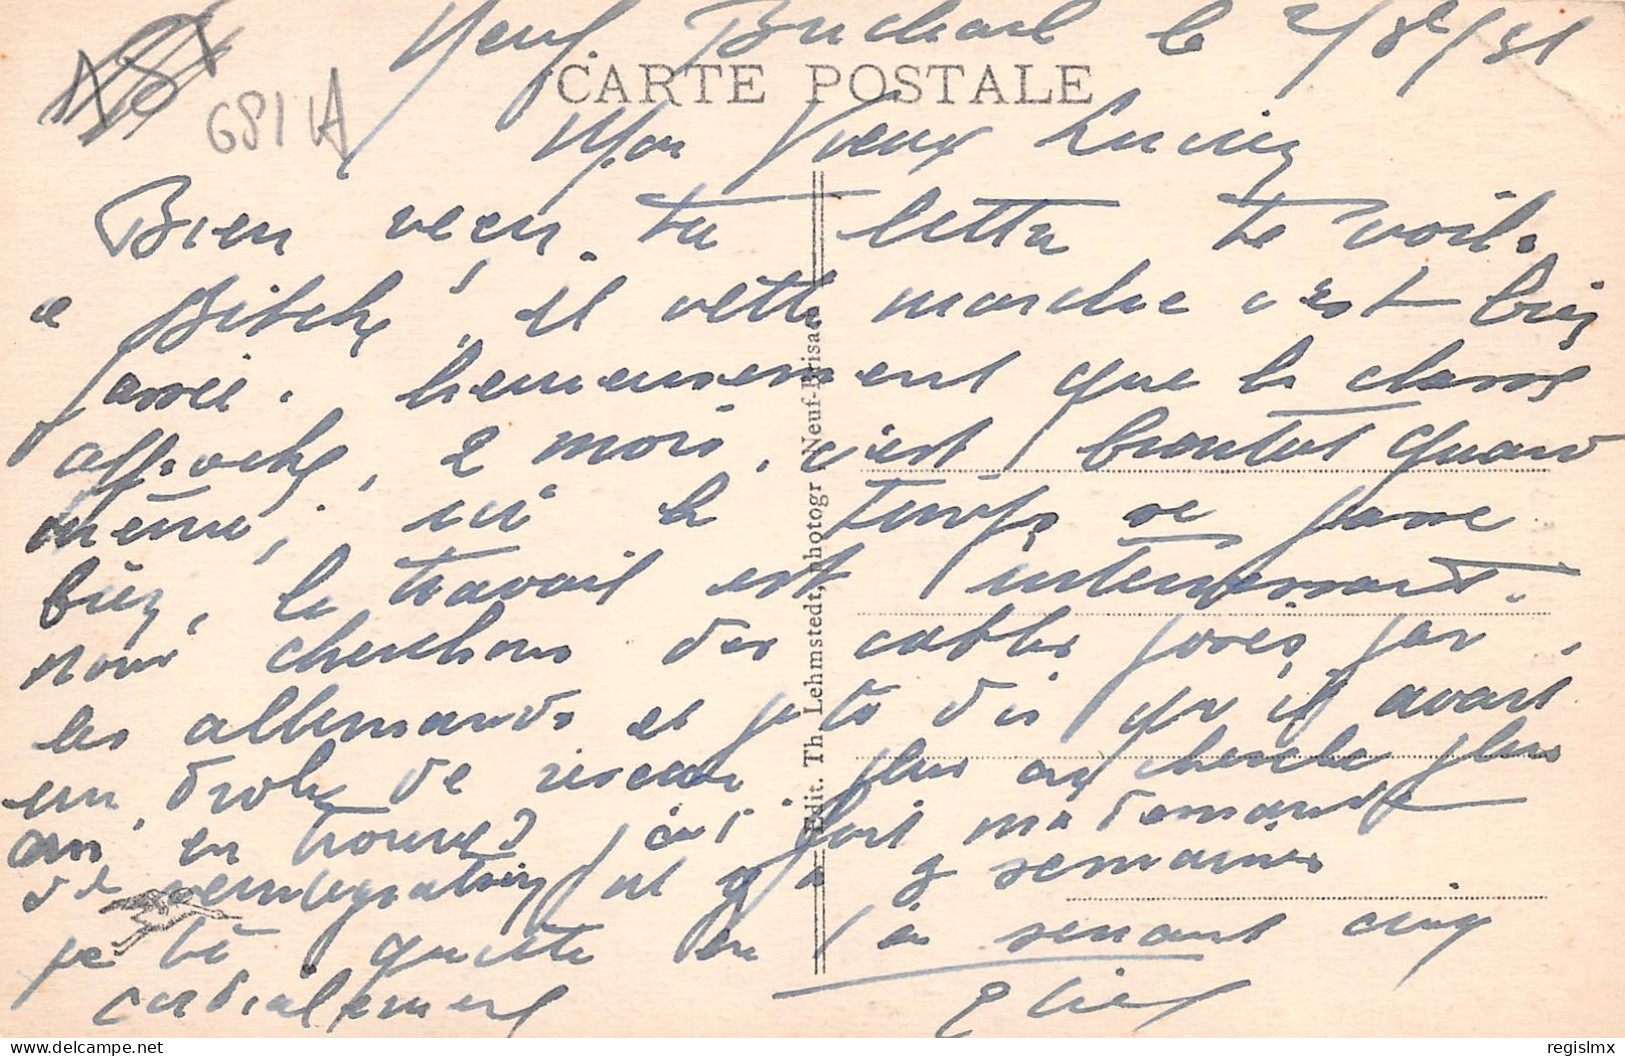 Neuf Brisach le 2/8/31
CARTE POSTALE
681 A
Mon Vieux Lucien
Bien reçu ta lettre te voilà
a Bitche, et cette marche c'est bien
passée. heureusement que la classe
approche, 2 mois, c'est bientot quand
même, ici le temps se passe
bien, le travail est interressant.
nous cherchons des cables posés par
les allemands et je te dis qu'il avait
un drole de réseau, plus on cherche plus
on en trouve, j'ai fait ma demande
de il y a 3 semaines
je te quitte en te serrant cinq
cordialement
Edit. Th. Lehmstedt, photogr Neuf-Brisach
regislmx